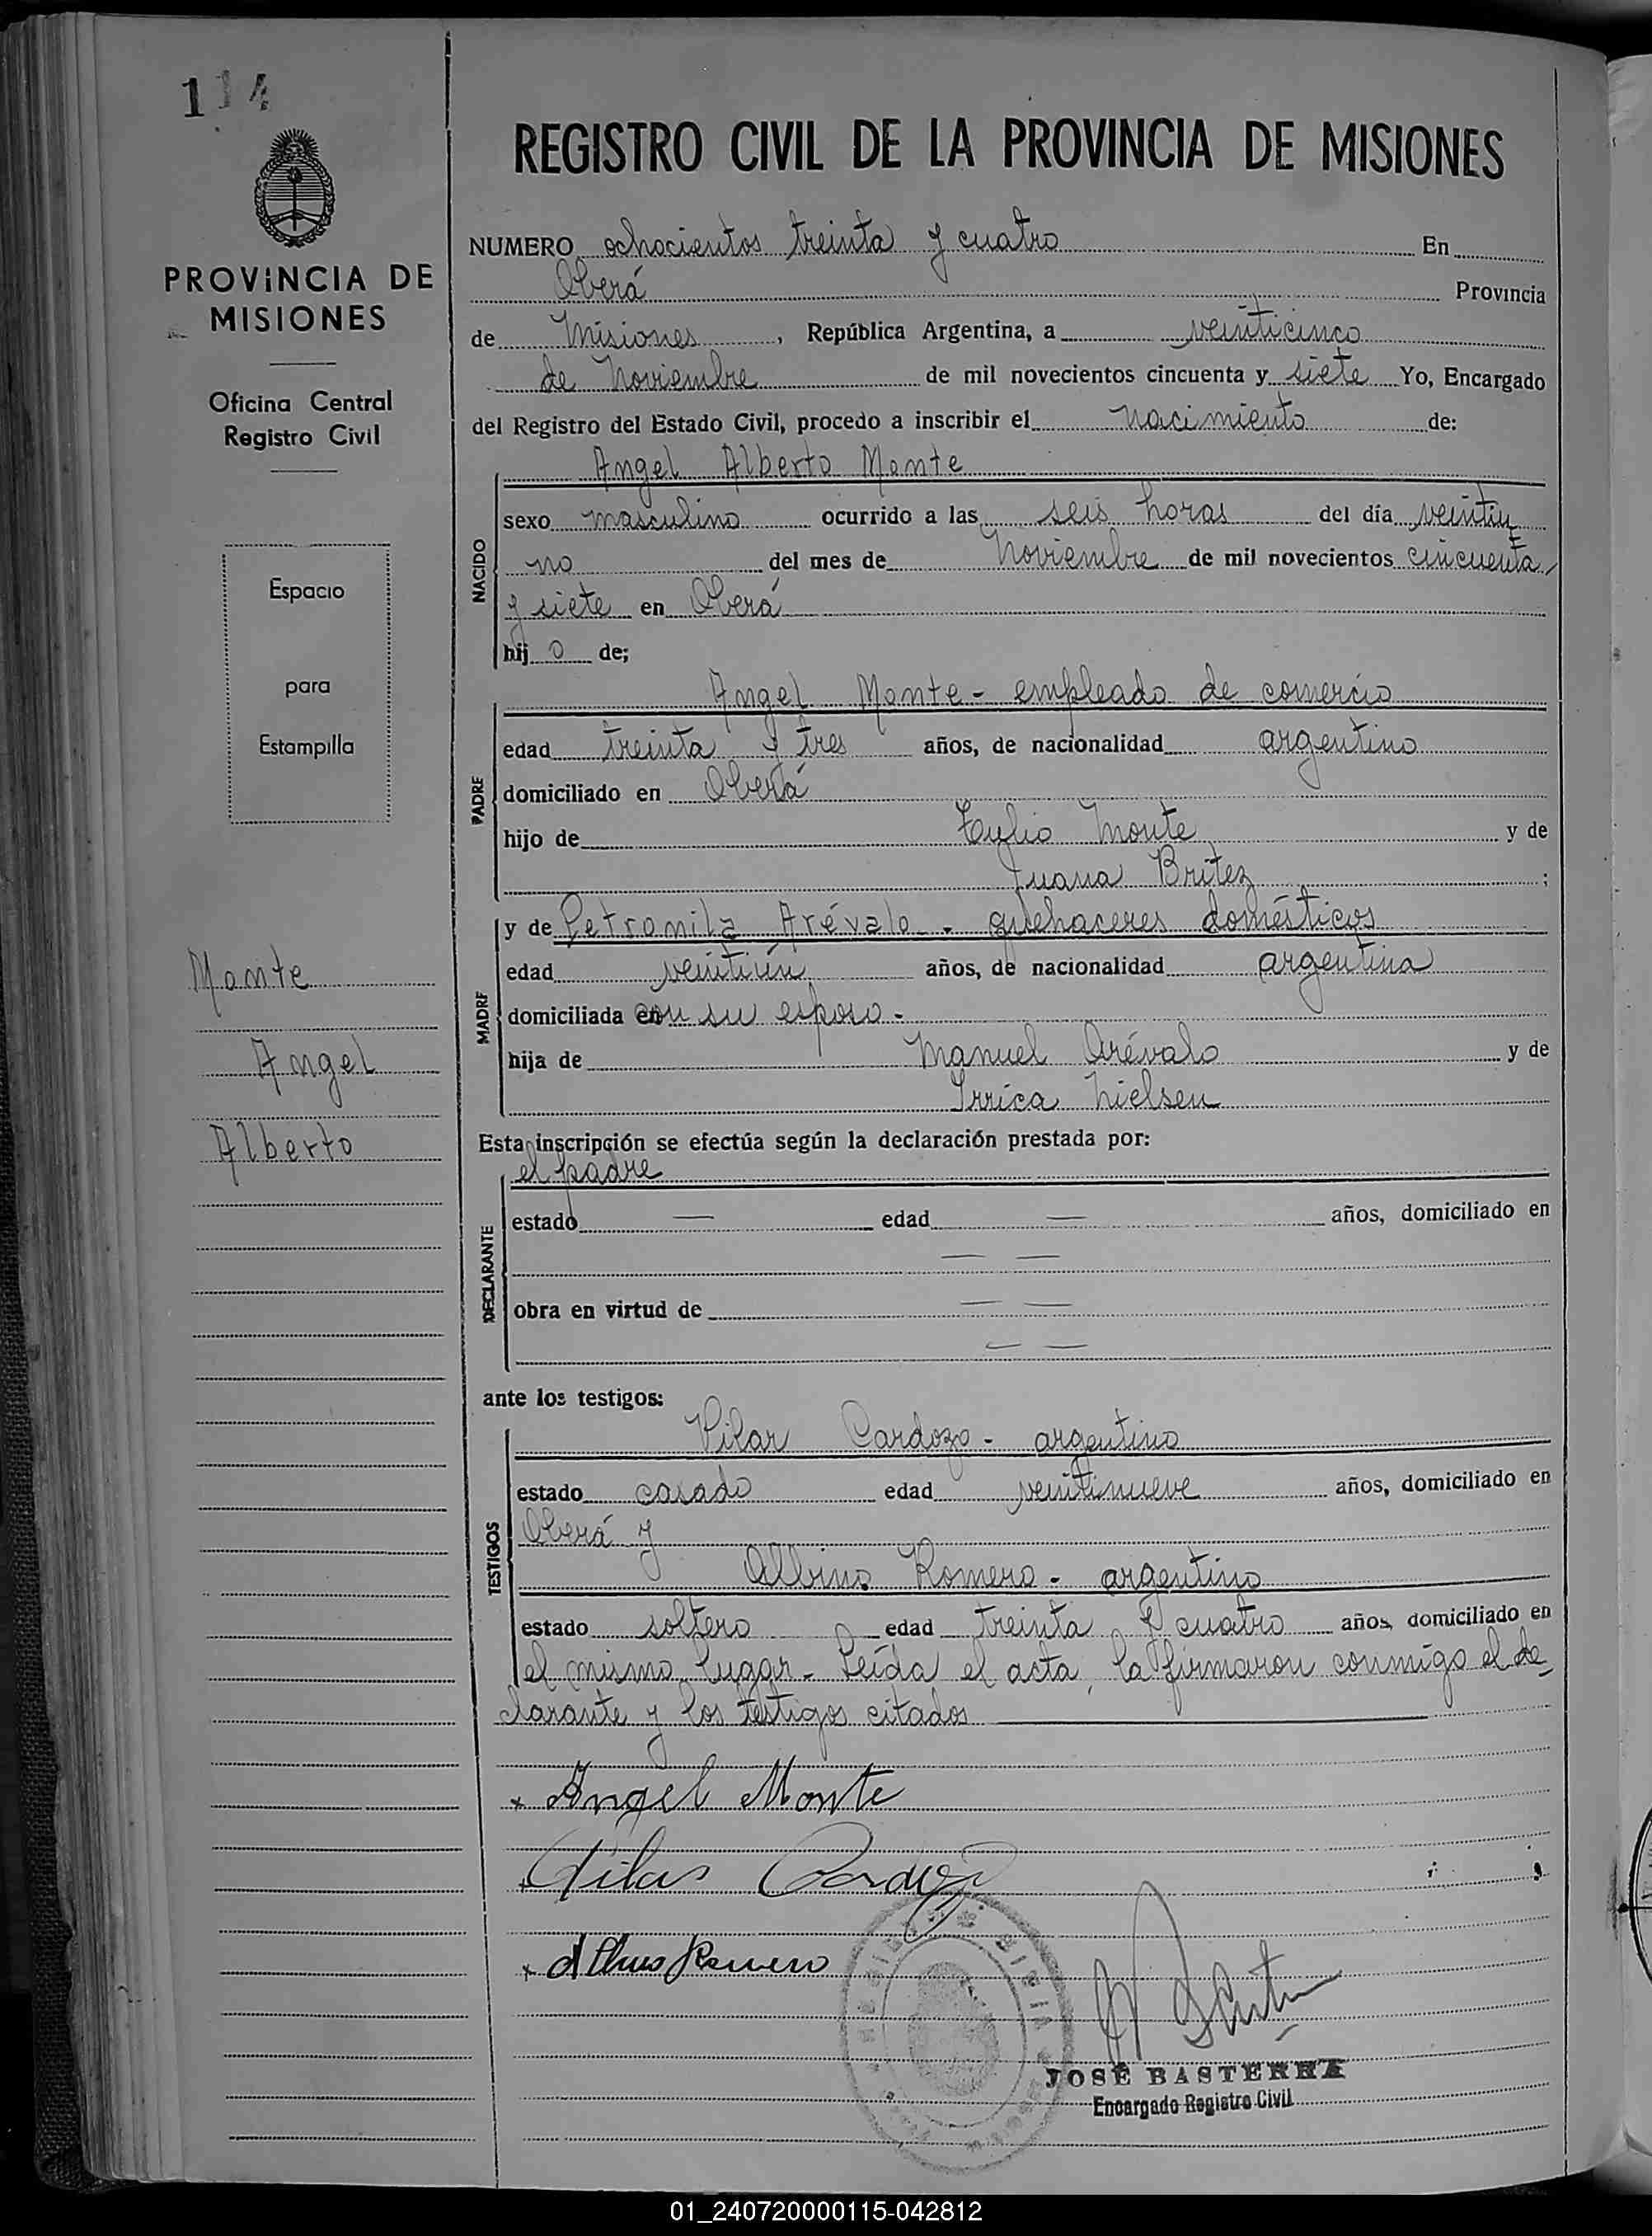 114
PROVINCIA DE
MISIONES
Oficina Central
Registro Civil
Espacio
para
Estampilla
Monte
Angel
Alberto
REGISTRO CIVIL DE LA PROVINCIA DE MISIONES
NUMERO ochocientos treinta y cuatro En
Oberá Provincia
de Misiones, República Argentina, a veinticinco
de Noviembre de mil novecientos cincuenta y siete Yo, Encargado
del Registro del Estado Civil, procedo a inscribir el nacimiento de:
Angel Alberto Monte
NACIDO
sexo masculino ocurrido a las seis horas del día veintiu
no del mes de Noviembre de mil novecientos cincuenta
y siete en Oberá
hij o de;
Angel Monte - empleado de comercio
PADRE
edad treinta y tres años, de nacionalidad argentino
domiciliado en Oberá
hijo de Monte y de
Juana Britez ;
y de Petronila Arévalo - quehaceres domésticos
MADRE
edad veintiún años, de nacionalidad argentina
domiciliada con su esposo -
hija de Manuel Arévalo y de
Irrica Nielsen
Esta inscripción se efectúa según la declaración prestada por:
el padre
DECLARANTE
estado — edad — años, domiciliado en
— —
obra en virtud de — —
— —
ante los testigos:
Pilar Cardozo - argentino
TESTIGOS
estado casado edad veintinueve años, domiciliado en
Oberá y
Albino Romero - argentino
estado soltero edad treinta y cuatro años, domiciliado en
el mismo lugar - Leída el acta, la firmaron conmigo el de
clarante y los testigos citados
x Angel Monte
Pilar
x Romero
JOSÉ BASTERRA
Encargado Registro Civil
01_240720000115-042812